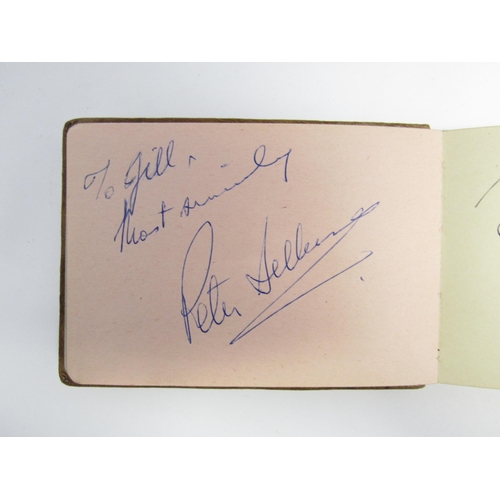 To Jill,
Most sincerely
Peter Sellers